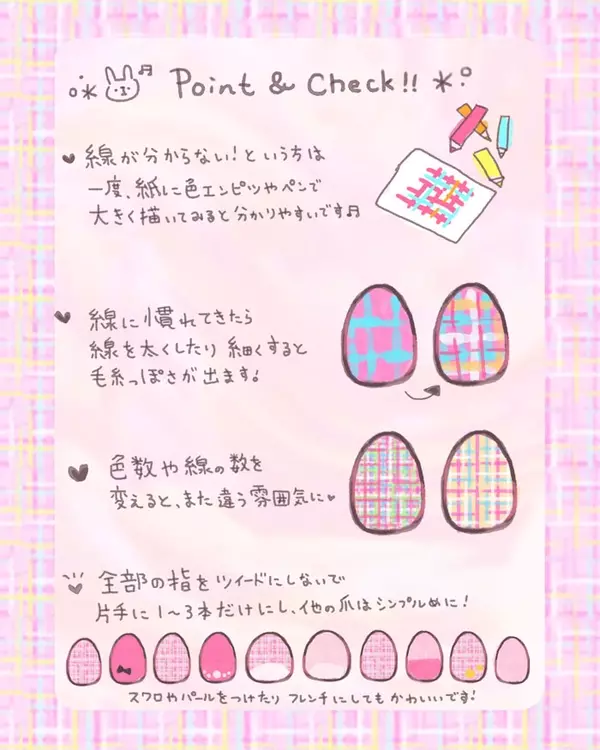 Point & Check!!
線が分からない!という方は
一度、紙に色エンピツやペンで
大きく描いてみると分かりやすいです♫
線に慣れてきたら
線を太くしたり 細くすると
毛糸っぽさが出ます!
色数や線の数を
変えると、また違う雰囲気に♥
全部の指をツイードにしないで
片手に1〜3本だけにし、他の爪はシンプルめに!
スワロやパールをつけたり フレンチにしても かわいいです!